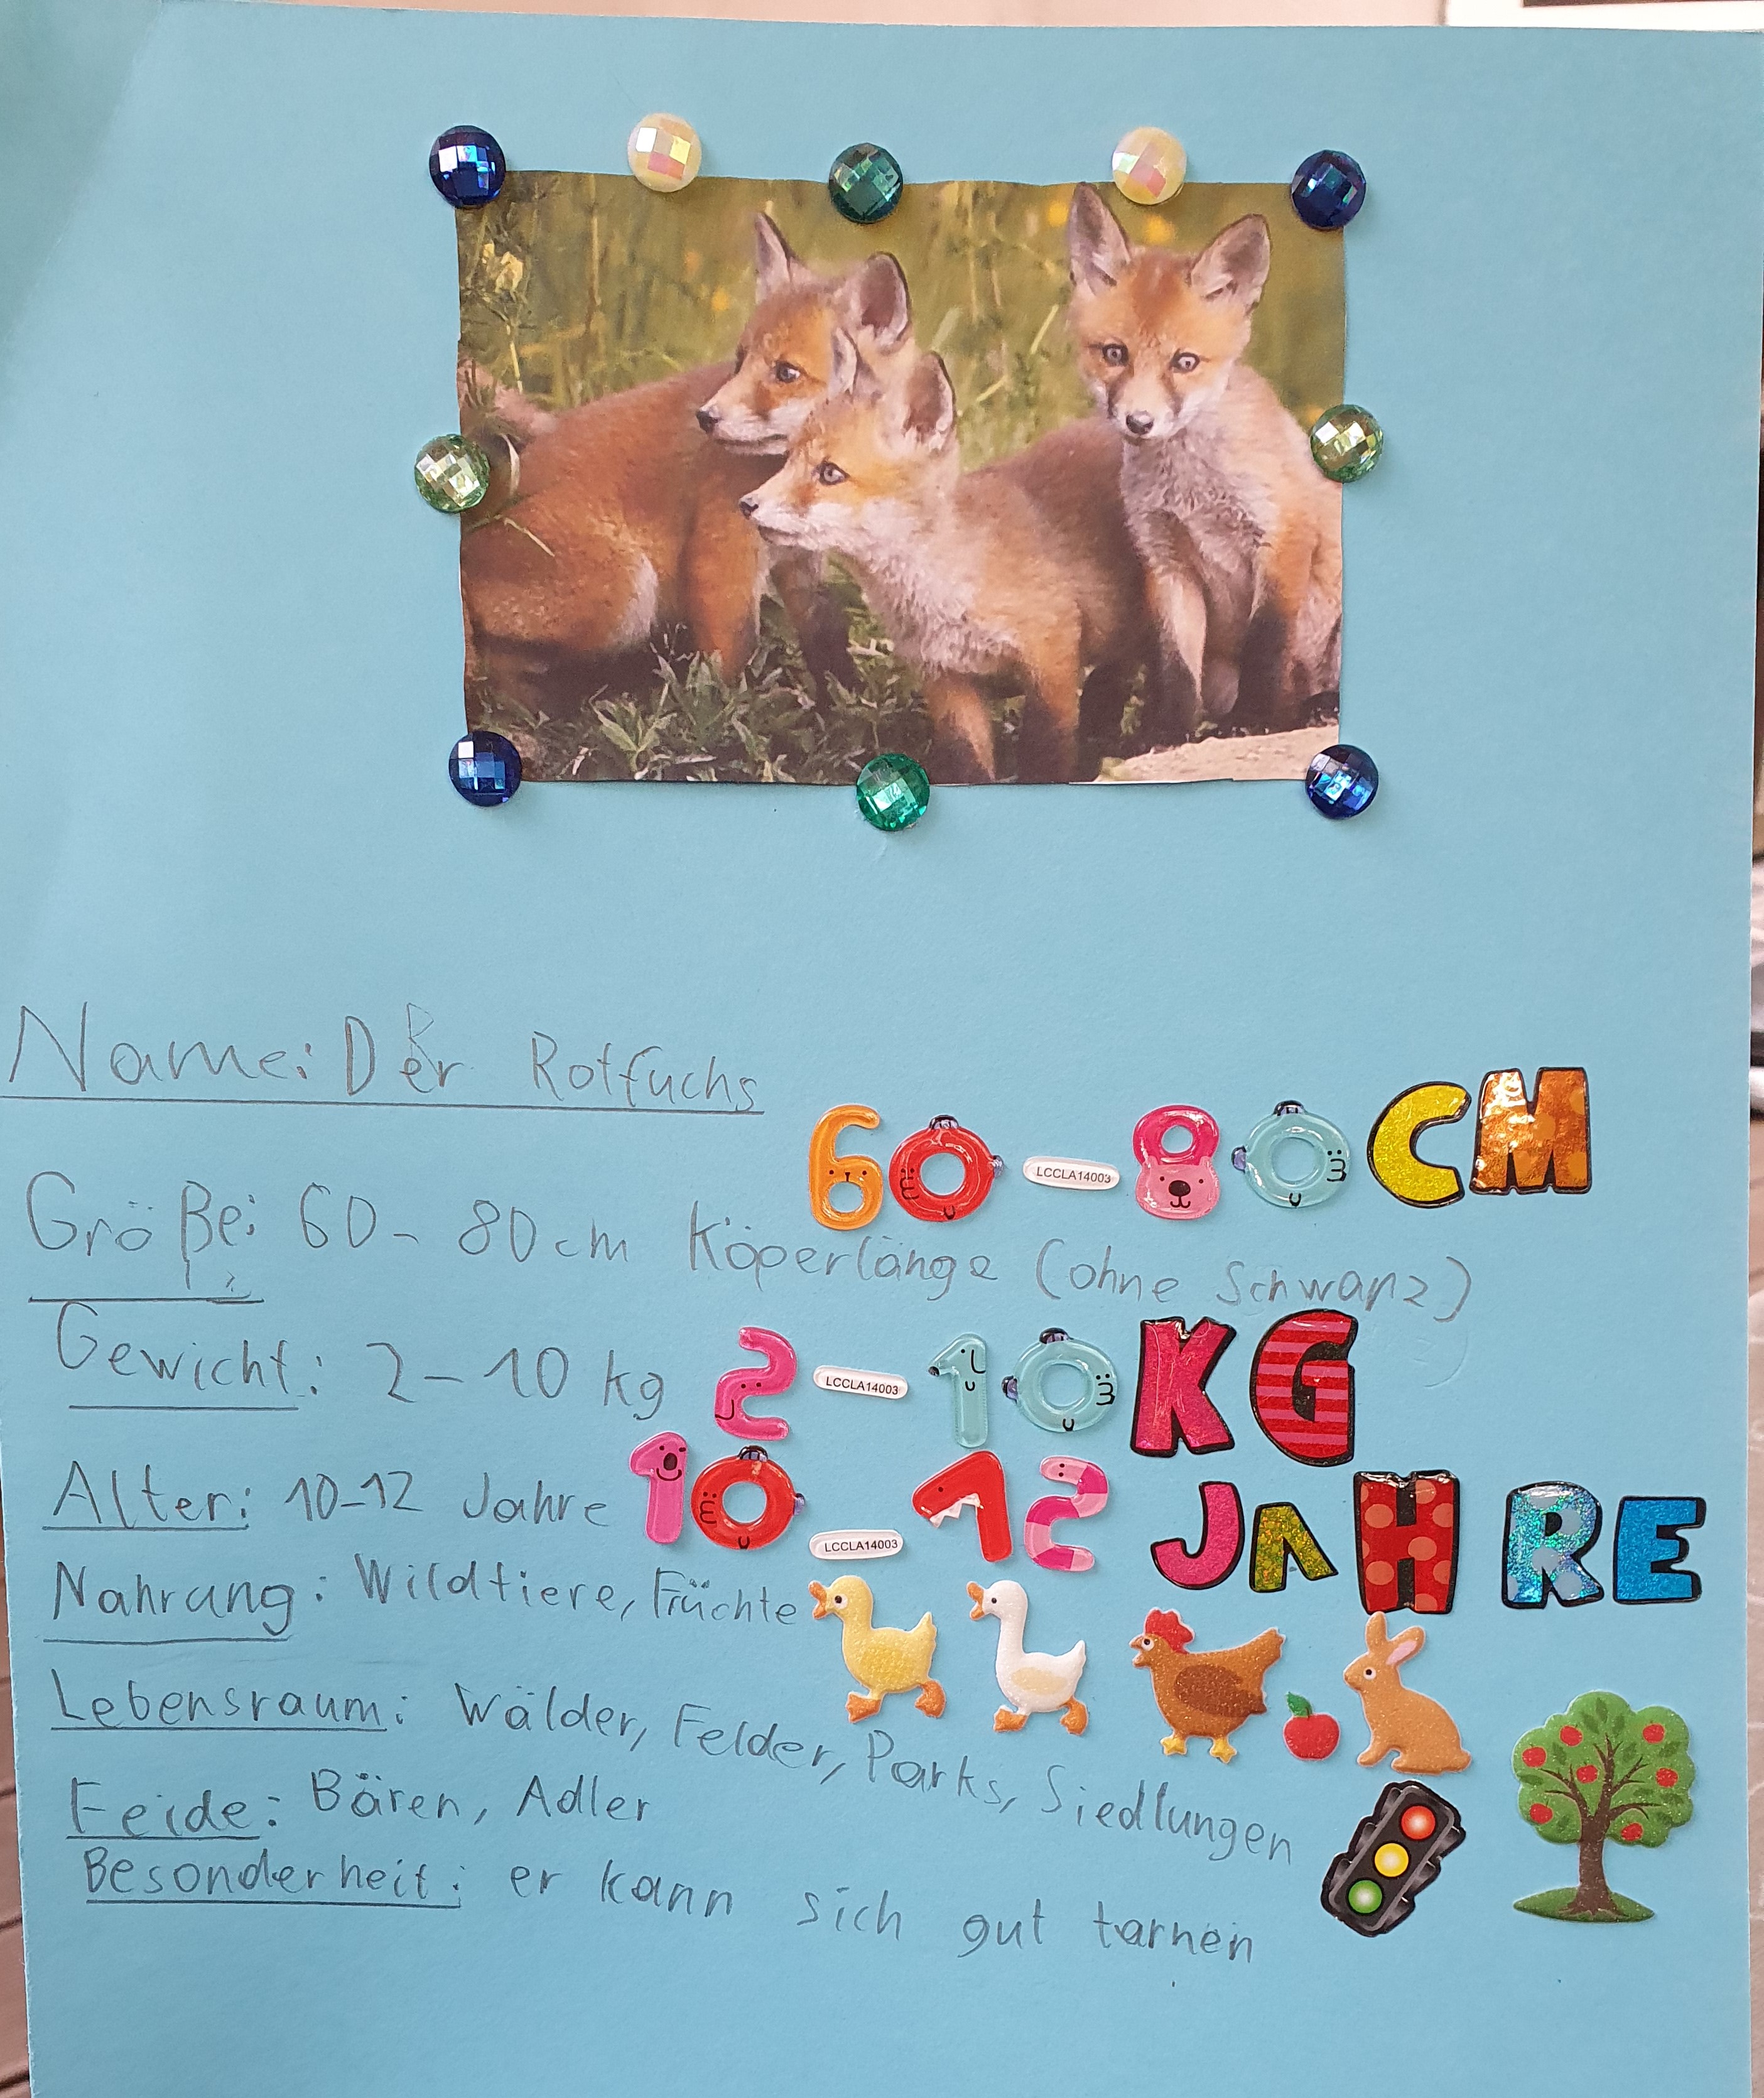 Name: Der Rotfuchs
60 - LCCLA14003 - 80 CM
Größe: 60 - 80 cm Köperlänge (ohne Schwanz)
Gewicht: 2 - 10 kg 2 - LCCLA14003 - 10 KG
Alter: 10-12 Jahre 10 - LCCLA14003 - 12 JAHRE
Nahrung: Wildtiere, Früchte
Lebensraum: Wälder, Felder, Parks, Siedlungen
Feide: Bären, Adler
Besonderheit: er kann sich gut tarnen